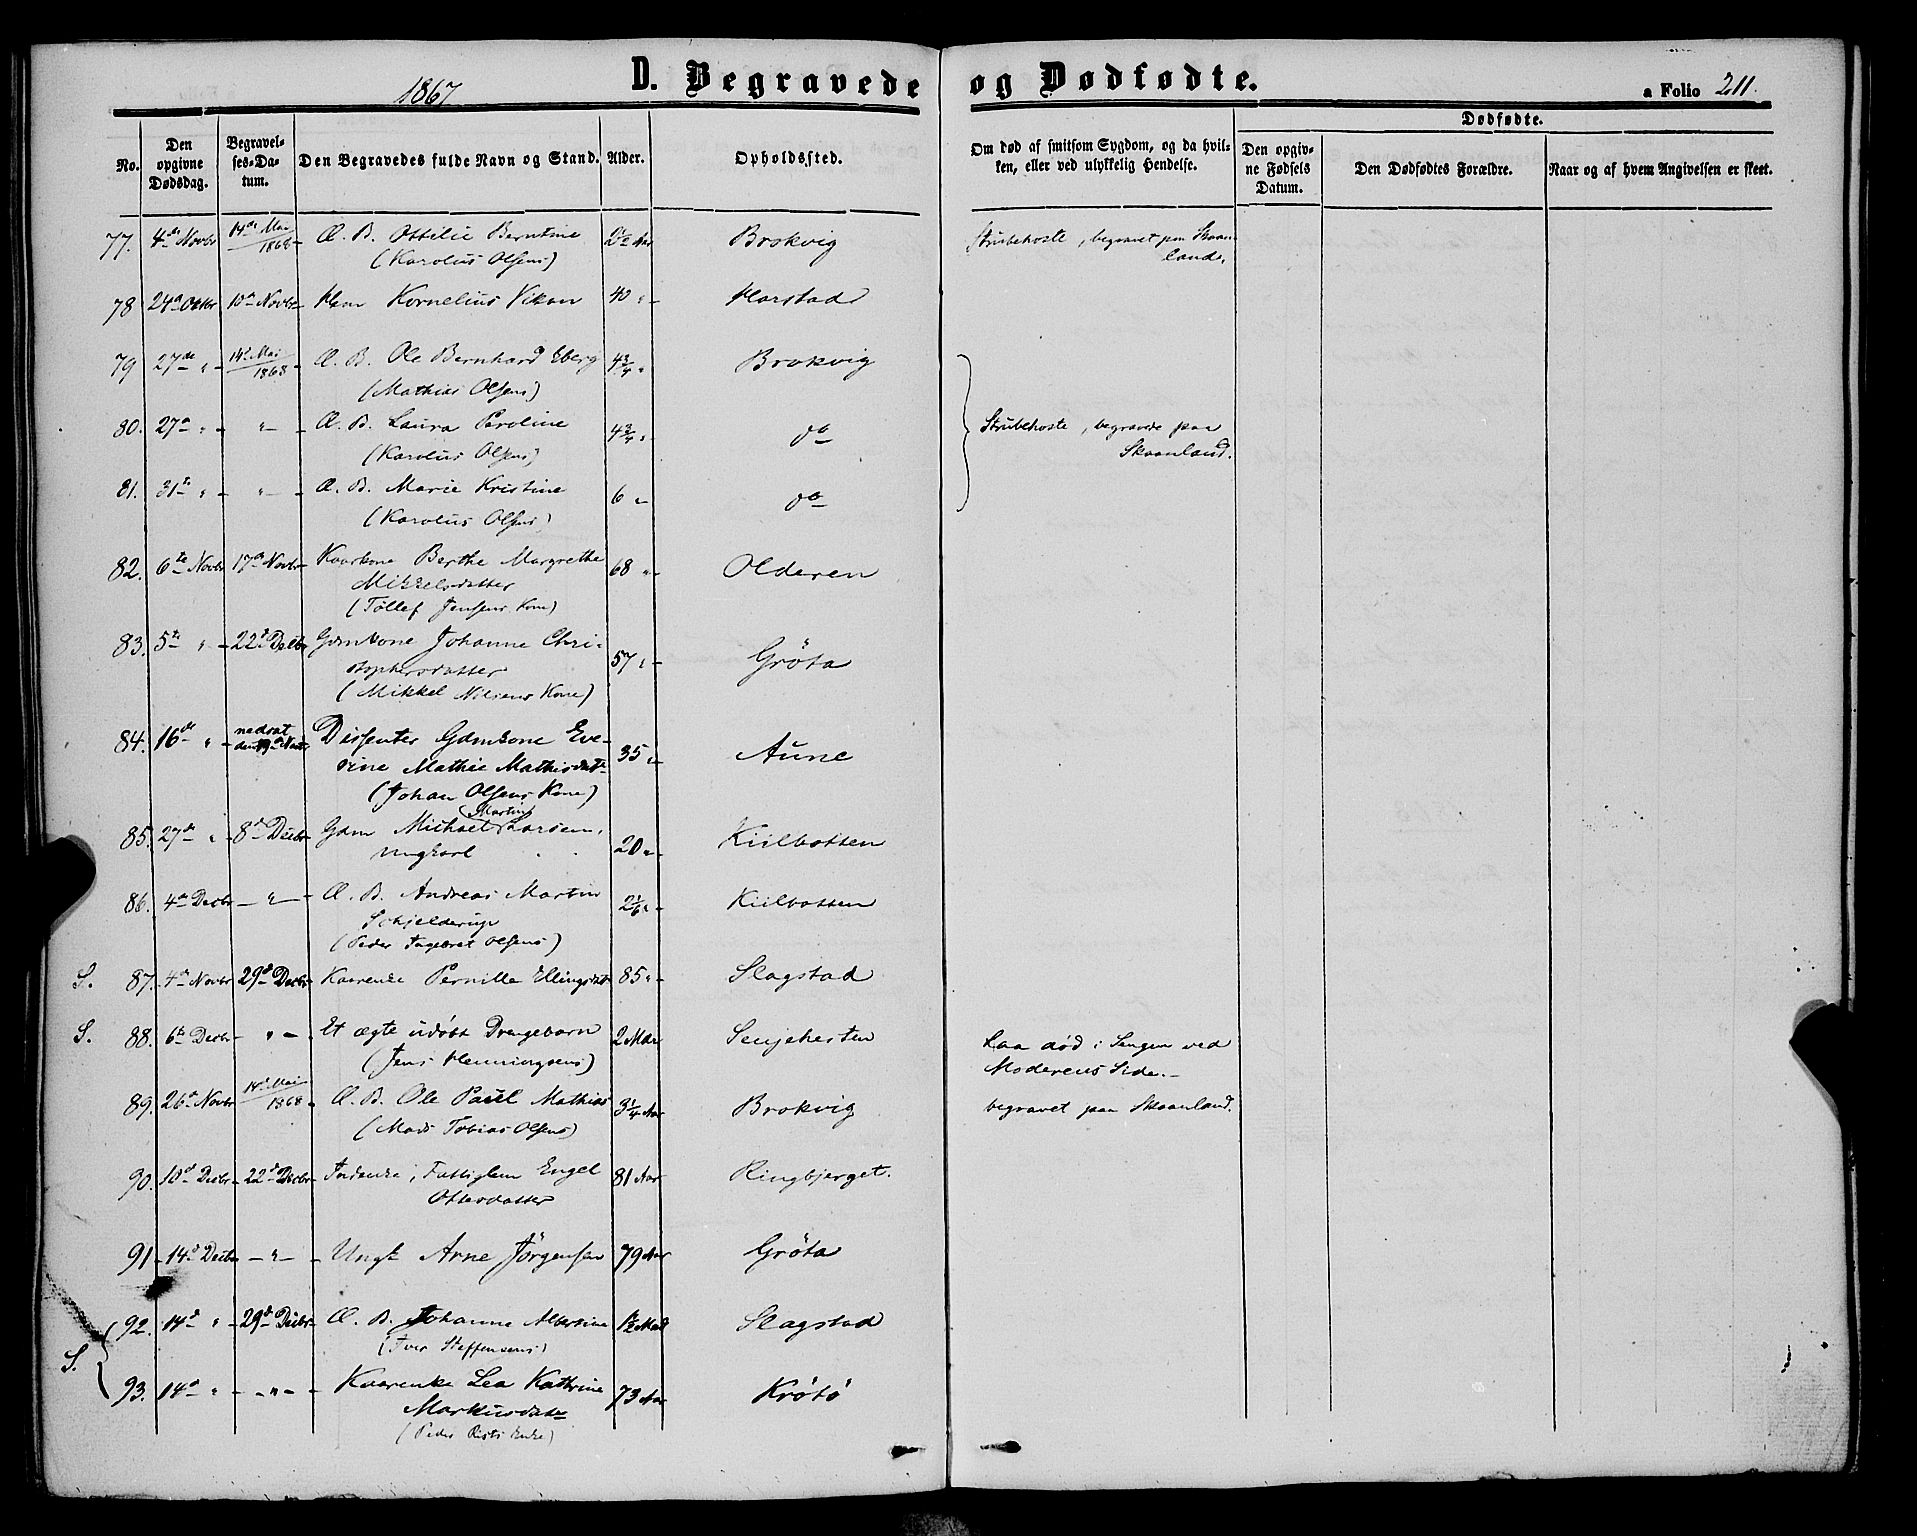 1867
D. Begravede og Dødfødte.
a Folio 211.
No.
Den opgivne Dødsdag.
Begravelses-Datum.
Den Begravedes fulde Navn og Stand.
Alder.
Opholdssted.
Om død af smitsom Sygdom, og da hvilken, eller ved ulykkelig Hendelse.
Dødfødte.
Den opgivne Fødsels Datum.
Den Dødfødtes Forældre.
Naar og af hvem Angivelsen er skeet.
77. 4de Novbr 14de Mai 1868 Æ. B. Ottilie Berntine 2½ Aar Brokvig Strubehoste, begravet paa Skaanland.
(Karolus Olsens)
78 24de Oktbr 10de Novbr Kornelius Vikan 40 " Harstad
79 27de " 14de Mai 1868 Æ. B. Ole Bernhard Eberg 4¾ " Brokvig
(Mathias Olsens)
80. 27de " " Æ. B. Laura Paroline 4¾ " do Strubehoste, begravde paa Skaanland.
(Karolus Olsens)
81. 31te " " Æ. B. Marie Kristine 6 " do
(Karolus Olsens)
82. 6te Novbr 17de Novbr Kaarkone Berthe Margrethe 68 " Olderen
Mikkelsdatter
(Tollef Jensens Kone)
83. 5te " 22de Decbr Gdmkone Johanne Chri- 57 " Gröta
stophersdatter
(Mikkel Nilsens Kone)
84. 16de " nedsat den 19de Novbr Dissenter Gdmkone Eve- 35 " Aune
rine Mathie Mathisdatr
(Johan Olsens Kone)
85. 27de " 8de Decbr Gdm Michael (Martin) Larsen, 20 " Kiilbotten
ungkarl
86. 4de Decbr " Æ. B. Andreas Martin 2 1/6 " Kiilbotten
Schjelderup
(Peder Ingebret Olsens)
S. 87. 4de Novbr 29de Decbr Kaarenke Pernille Ellingsdatr 85 " Slagstad
S. 88. 6te Decbr " Et ægte udöbt Drengebarn 2 Mdr Senjehesten Laa död i Sengen ved
(Jens Henningsens) Moderens Side.
89. 26de Novbr 14de Mai 1868 Æ. B. Ole Paul Mathias 3¼ Aar Brokvig begravet paa Skaanland.
(Mads Tobias Olsens)
90. 10de Decbr 22de Decbr Inderke, Fattiglem Engel 81 Aar Ringbjerget.
Ottersdatter
91 14de Decbr " Ungk Arne Jörgensen 79 Aar Gröta
S. 92. 14de " 29de Decbr Æ. B. Johanna Albertine 1½ Mdr Slagstad
(Iver Steffensens)
93. 14de " " Kaarenke Lea Kathrine 73 Aar Krötö
Markusdatr
(Peder Rists Enke)